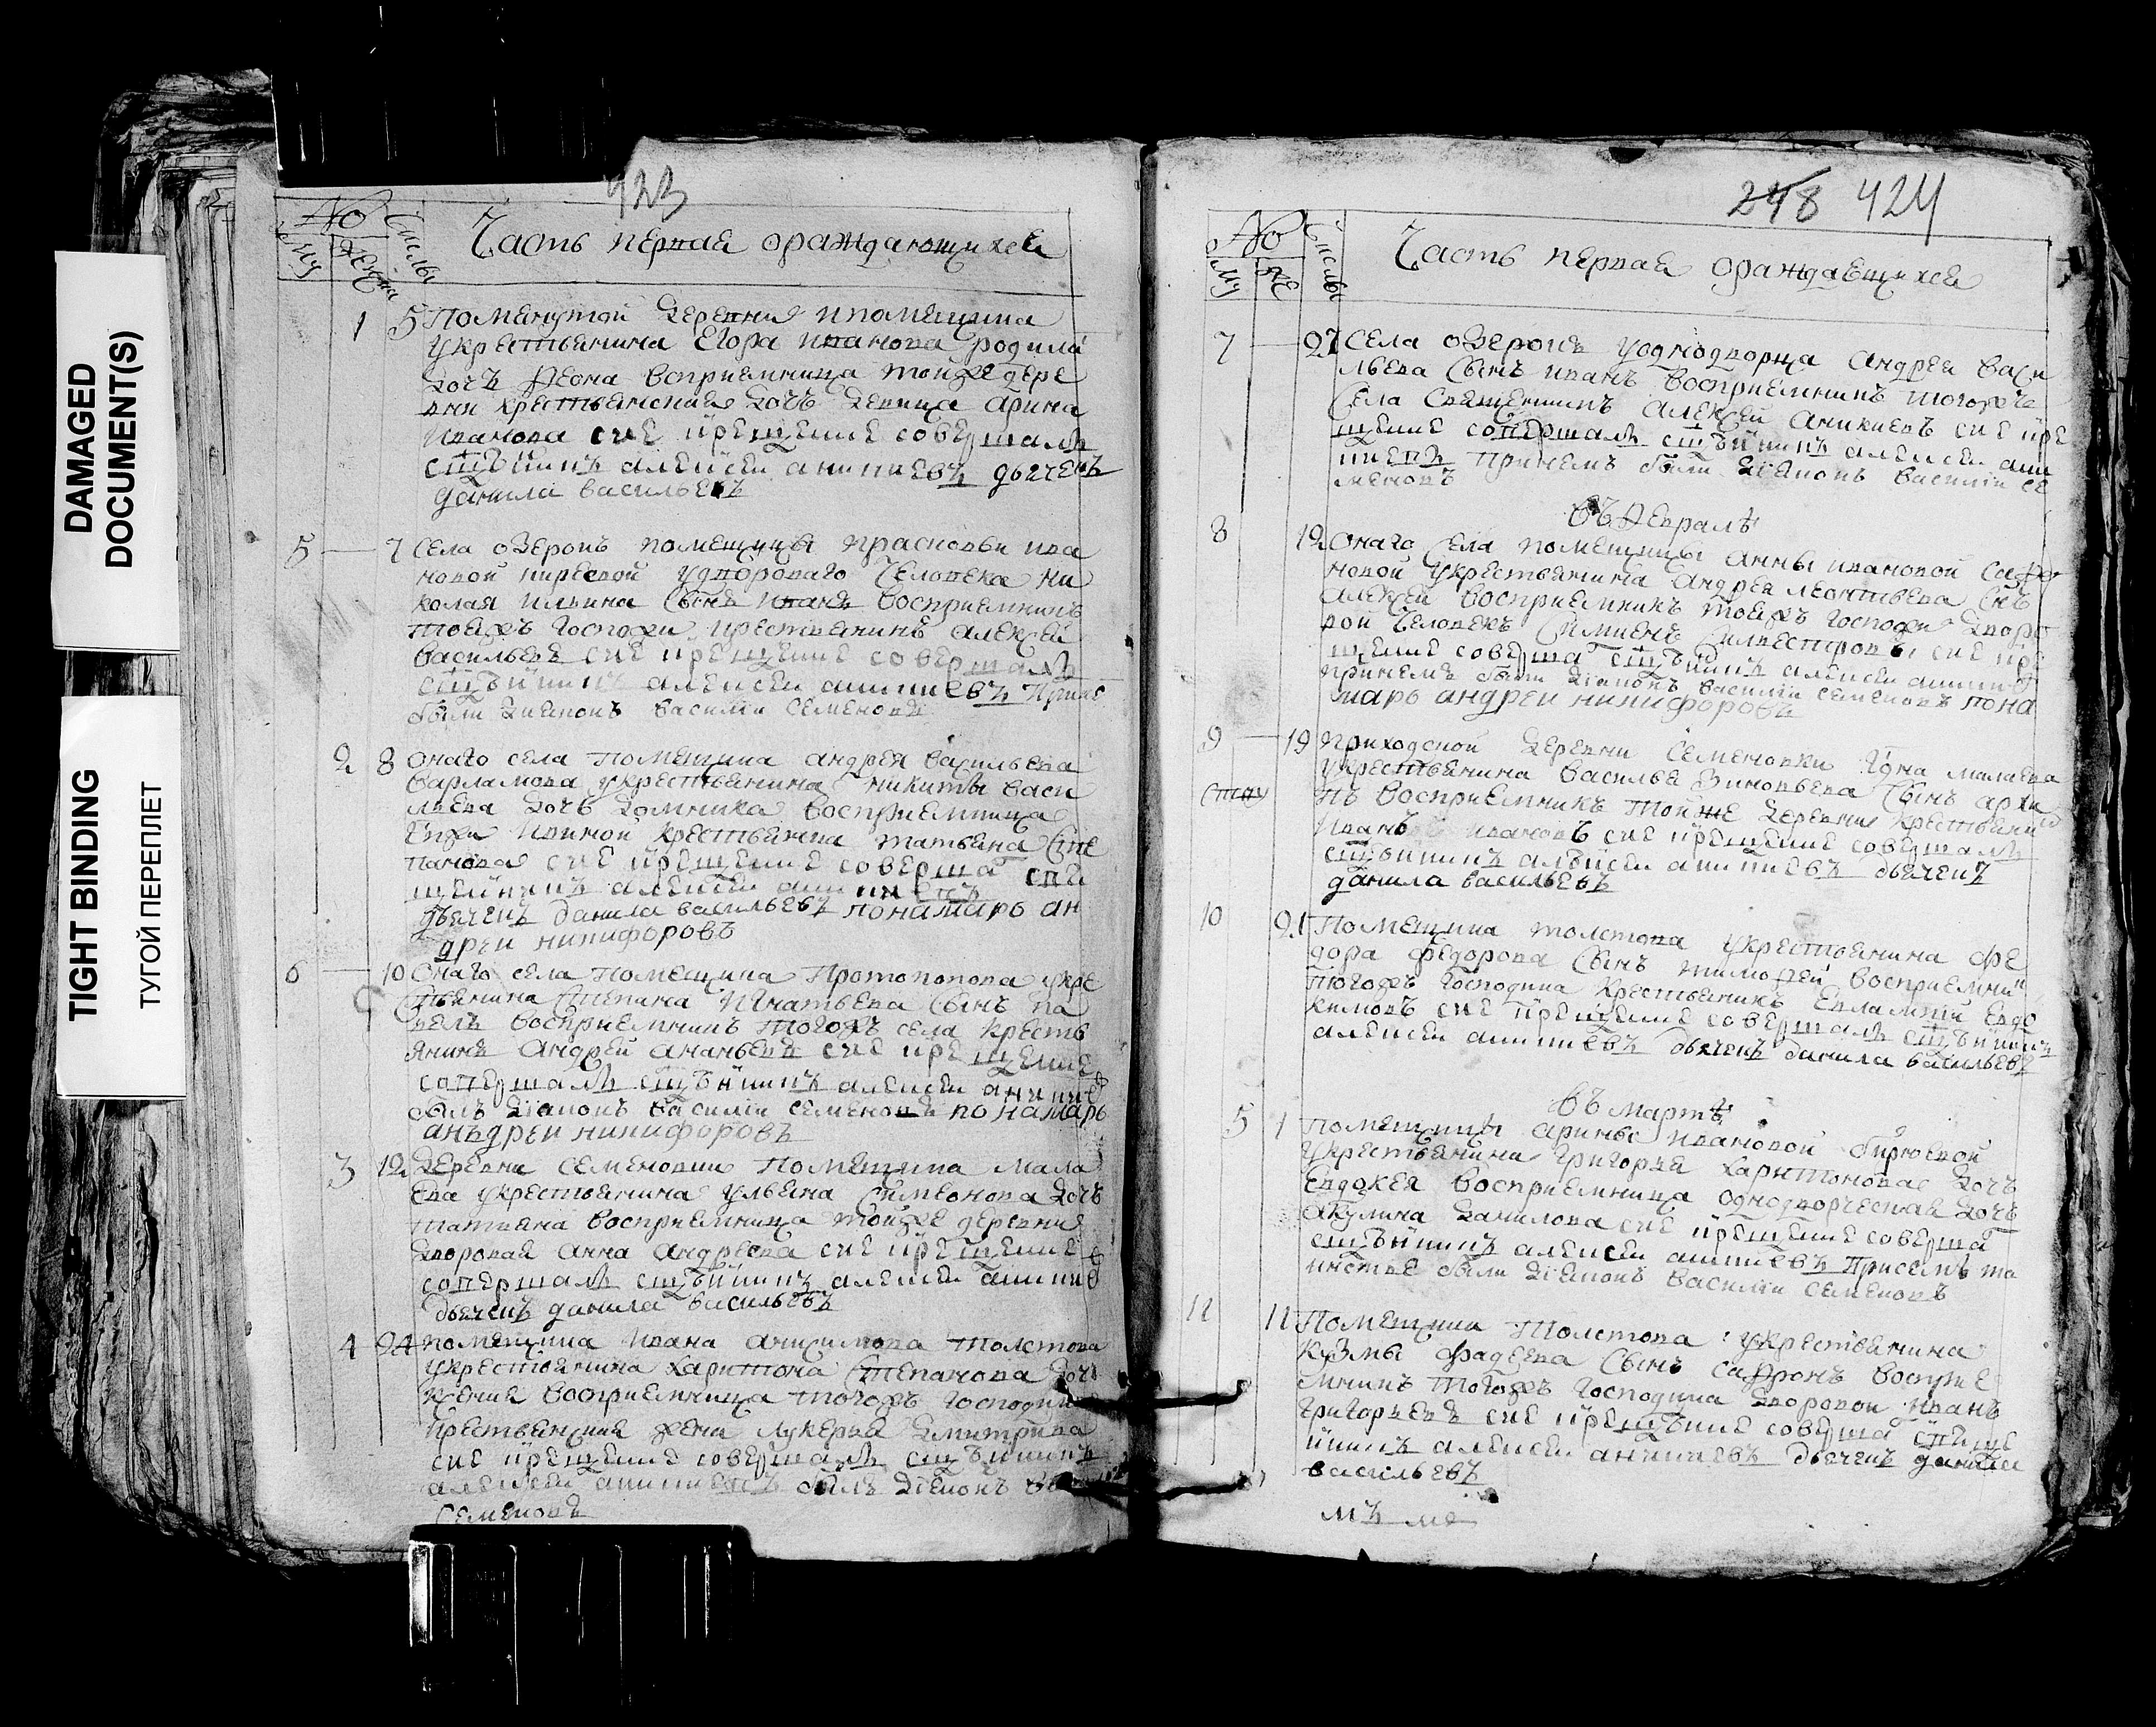 DAMAGED
DOCUMENT(S)
TIGHT BINDING
ТУГОЙ ПЕРЕПЛЕТ
423
№ Числы
Часть первая ораждающихся
1 5 Помянутой деревни помещика
укрестьянина Егора Иванова родила
дочь воспрiемница тойже дере
вни крестьянская дочь девица Арина
Иванова сие крещение совершалъ
сщенникъ алексеи аникиевъ дьячекъ
данила васильевъ
5 7 Села оЗерокъ помещицы Прасковьи ива
новой киреевой удвороваго Человека Ни
колая Ильина Сынъ иванъ восприемникъ
тояжъ Госпожи крестьянинъ Алексей
Васильевъ сие крещение совершалъ
сщенникъ алексеи аникиевъ При
были дияконъ василiи Семеновъ
2 8 Онаго села Помещика Андрея Васильева
Варламова укрестьянина Никиты Васи
льева дочь Домника восприемница
крестьянка татьяна Сте
панова сие крещение соверша свя
щенникъ алексеи аникиевъ
дьячекъ данила васильевъ понамарь ан
дреи никифоровъ
6 10 Онаго села Помещика Протопопова укре
стьянина Степана Игнатьева Сынъ Па
велъ восприемникъ тогожъ села крестья
янинъ Андрей Ананьевъ сие крещение
совершалъ сщенникъ алексеи аники
былъ дiаконъ Василiи Семеновъ понамарь
анъдреи никифоровъ
3 12 Деревни Семеновки Помещика Мала
ева укрестьянина Ульяна Симеонова дочь
татьяна восприемница тойже деревни
дворовая Анна Андреева сие крещение
совершалъ сщенникъ алексеи аники
дьячекъ данила васильевъ
4 24 помещика Ивана Анисимова Толстова
укрестьянина Харитона Степанова дочь
Ксения восприемница тогожъ господина
крестьянская жена Лукерья Дмитрива
сие крещение совершалъ сщенникъ
алексеи аникиевъ былъ дiяконъ
Семеновъ
248 424
№ Числы
Часть первая ораждаещихся
7 27 Села оЗерокъ уоднодворца Андрея Васи
льева Сынъ иванъ восприемникъ тогоже
Села Священникъ Алексей Аникиевъ сие кре
щение совершалъ сщенникъ алексеи ани
киевъ Причемъ были дiяконъ Василiи Се
меновъ
Въ Феврале
8 12 Онаго Села помещицы Анны ивановой Сафо
новой укрестьянина Андрея Леонтьева Снъ
Алексей восприемникъ тояжъ Госпожи дворо
вой Человекъ Силвестровъ сие кре
щение соверша сщенникъ алексеи аники
причемъ были дiяконъ василiи семеновъ пона
марь андреи никифоровъ
9 19 Приходской деревни Семеновки Гдна малаева
укрестьянина Василья Зиновьева Сынъ архи
пъ восприемникъ тойже деревни крестьяни
Иванъ ивановъ сие крещение совершалъ
сщенникъ алексеи аникиевъ дьячекъ
данила васильевъ
10 21 Помещика толстова укрестьянина Фе
дора Федорова Сынъ тимофей восприемни
тогожъ Господина крестьянинъ Евлампий Евдо
кимовъ сие крещение совершалъ сщенникъ
алексеи аникиевъ дьячекъ данила васильевъ
Въ марте
5 1 Помещицы Арины ивановой бирюевой
укрестьянина Григорья Харитонова дочь
Евдокея восприемница однодворческая дочь
Акулина Данилова сие крещение соверша
сщенникъ алексеи аникиевъ Присемъ та
инстве были дiяконъ Василiи Семеновъ
11 11 Помещика Толстова укрестьянина
Кузмы Фадеева Сынъ Сафронъ воспрiе
мникъ тогожъ господина дворовой иванъ
Григорьевъ сие крещение соверша свяще
нникъ алексеи аникиевъ дьячекъ данила
васильевъ